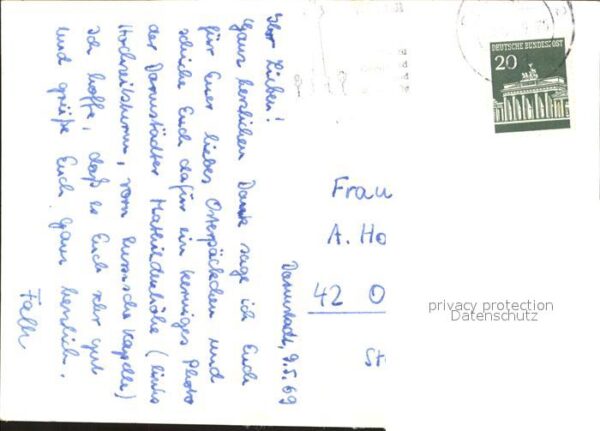 Darmstadt, 9.5.69
Ihr Lieben!
Ganz herzlichen Dank sage ich Euch
für Euer liebes Osterpäckchen und
schicke Euch dafür ein kerniges Photo
der Darmstädter Mathildenhöhe (links
Hochzeitsturm, vorn Russische Kapelle)
Ich hoffe, daß es Euch sehr gut
und grüße Euch ganz herzlich.
DEUTSCHE BUNDESPOST
20
Frau
A. Ho
42 O
St
privacy protection
Datenschutz